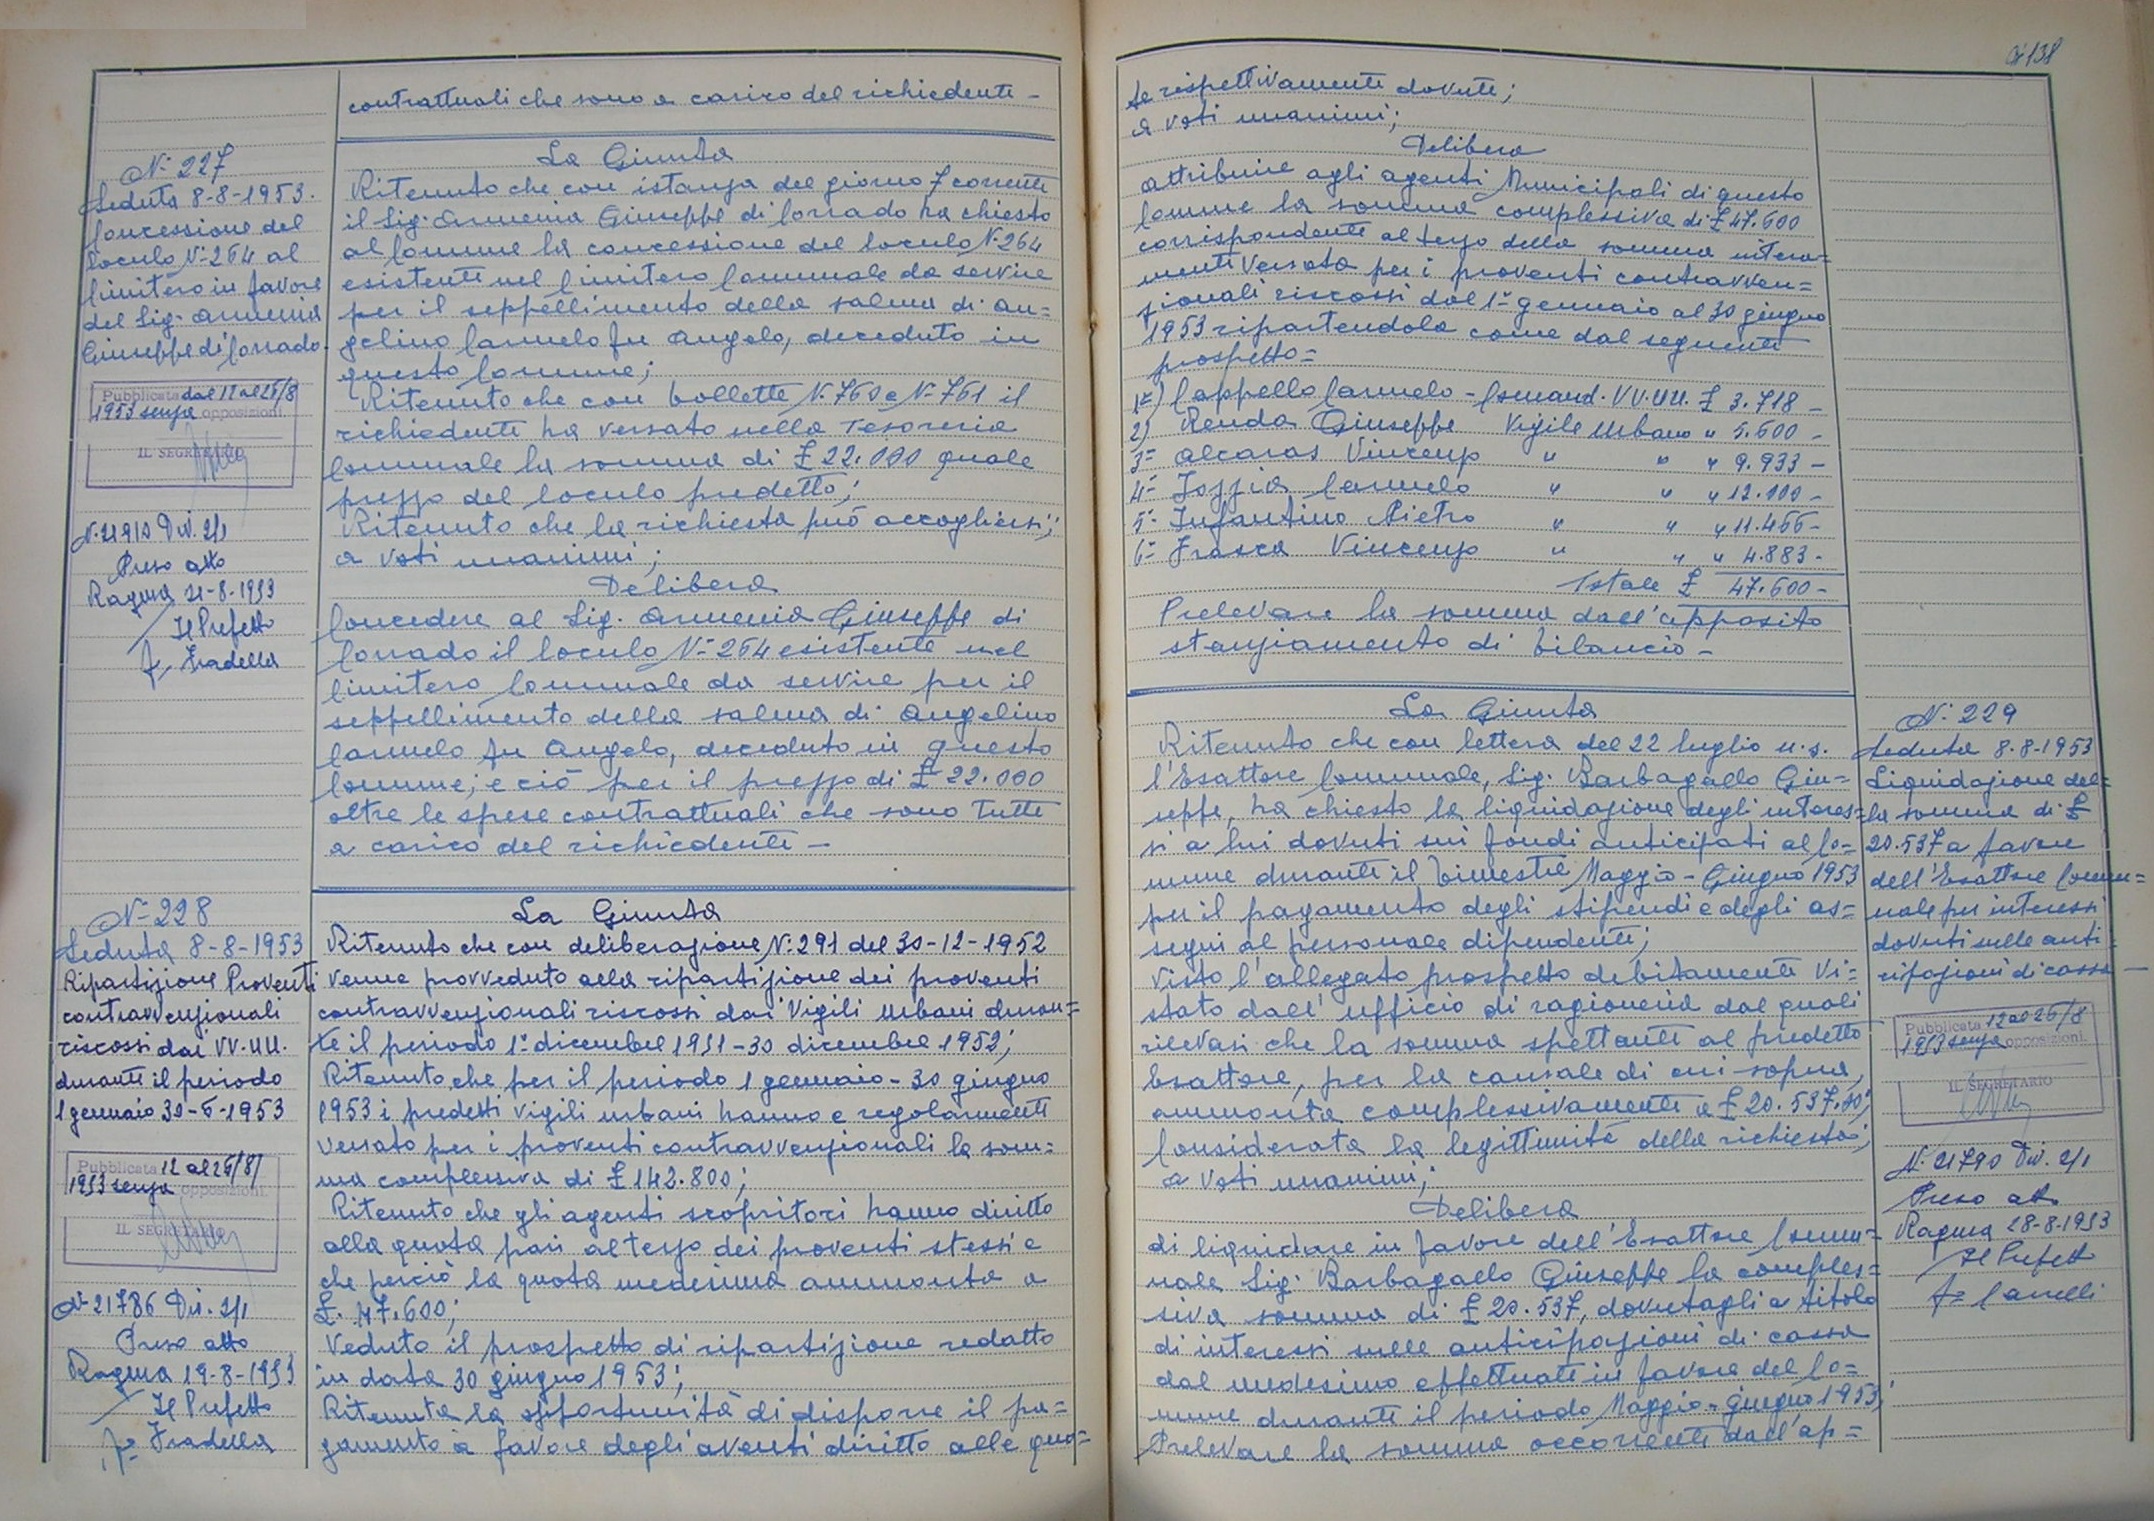 contrattuali che sono a carico del richiedente -
N° 227
Seduta 8-8-1953.
Concessione del
loculo N° 264 al
Cimitero in favore
del Sig. Armenia
Giuseppe di Corrado.
Pubblicata dal 12 al 26/8
1953 senza opposizioni.
IL SEGRETARIO
N. 21910 Div. 2/1
Preso atto
Ragusa 21-8-1953
Il Prefetto
f. Fradella
La Giunta
Ritenuto che con istanza del giorno 7 corrente
il Sig. Armenia Giuseppe di Corrado ha chiesto
al Comune la concessione del loculo N. 264
esistente nel Cimitero Comunale da servire
per il seppellimento della salma di An=
gelino Carmelo fu Angelo, deceduto in
questo Comune;
Ritenuto che con bollette N. 760 e N. 761 il
richiedente ha versato nella Tesoreria
Comunale la somma di £ 22.000 quale
prezzo del loculo predetto;
Ritenuto che la richiesta può accogliersi;
a voti unanimi;
Delibera
Concedere al Sig. Armenia Giuseppe di
Corrado il loculo N° 264 esistente nel
Cimitero Comunale da servire per il
seppellimento della salma di Angelino
Carmelo fu Angelo, deceduto in questo
Comune; e ciò per il prezzo di £ 22.000
oltre le spese contrattuali che sono tutte
a carico del richiedente -
N° 228
Seduta 8-8-1953
Ripartizione Proventi
contravvenzionali
riscossi dai VV.UU.
durante il periodo
1 gennaio 30-6-1953
Pubblicata 12 al 26/8/
1953 senza opposizioni.
IL SEGRETARIO
N° 21786 Div. 2/1
Preso atto
Ragusa 19-8-1953
Il Prefetto
f° Fradella
La Giunta
Ritenuto che con deliberazione N. 291 del 30-12-1952
venne provveduto alla ripartizione dei proventi
contravvenzionali riscossi dai Vigili Urbani duran=
te il periodo 1° dicembre 1951 - 30 dicembre 1952;
Ritenuto che per il periodo 1 gennaio - 30 giugno
1953 i predetti vigili urbani hanno e regolarmente
versato per i proventi contravvenzionali la som=
ma complessiva di £ 142.800;
Ritenuto che gli agenti scopritori hanno diritto
alla quota pari al terzo dei proventi stessi e
che perciò la quota medesima ammonta a
£. 47.600;
Veduto il prospetto di ripartizione redatto
in data 30 giugno 1953;
Ritenuta la opportunità di disporre il pa=
gamento a favore degli aventi diritto alle quo=
138
te rispettivamente dovute;
a voti unanimi;
Delibera
attribuire agli agenti Municipali di questo
Comune la somma complessiva di £ 47.600
corrispondente al terzo della somma intera=
mente versata per i proventi contravven=
zionali riscossi dal 1° gennaio al 30 giugno
1953 ripartendola come dal seguente
prospetto =
1°) Cappello Carmelo - Comand. VV.UU. £ 3.718 -
2) Renda Giuseppe Vigile Urbano " 5.600 -
3° Alcaras Vincenzo " " " 9.933 -
4° Iozzia Carmelo " " " 12.000 -
5° Infantino Pietro " " " 11.466 -
6° Frasca Vincenzo " " " 4.883 -
Totale £ 47.600 -
Prelevare la somma dall'apposito
stanziamento di bilancio -
La Giunta
Ritenuto che con lettera del 22 luglio u.s.
l'Esattore Comunale, Sig. Barbagallo Giu=
seppe, ha chiesto la liquidazione degli interes=
si a lui dovuti sui fondi anticipati al Co=
mune durante il bimestre Maggio - Giugno 1953
per il pagamento degli stipendi e degli as=
segni al personale dipendente;
Visto l'allegato prospetto debitamente vi=
stato dall'ufficio di ragioneria dal quale
rilevasi che la somma spettante al predetto
Esattore, per la causale di cui sopra,
ammonta complessivamente a £ 20.537,00;
Considerata la legittimità della richiesta;
a voti unanimi;
Delibera
di liquidare in favore dell'Esattore Comu=
nale Sig. Barbagallo Giuseppe la comples=
siva somma di £ 20.537, dovutagli a titolo
di interessi sulle anticipazioni di cassa
dal medesimo effettuate in favore del Co=
mune durante il periodo Maggio - Giugno 1953;
Prelevare la somma occorrente dall'ap=
N° 229
Seduta 8-8-1953
Liquidazione del=
la somma di £
20.537 a favore
dell'Esattore Comu=
nale per interessi
dovuti sulle anti=
cipazioni di cassa -
Pubblicata 12 al 26/8
1953 senza opposizioni.
IL SEGRETARIO
N. 21790 Div. 2/1
Preso atto
Ragusa 28-8-1953
Il Prefetto